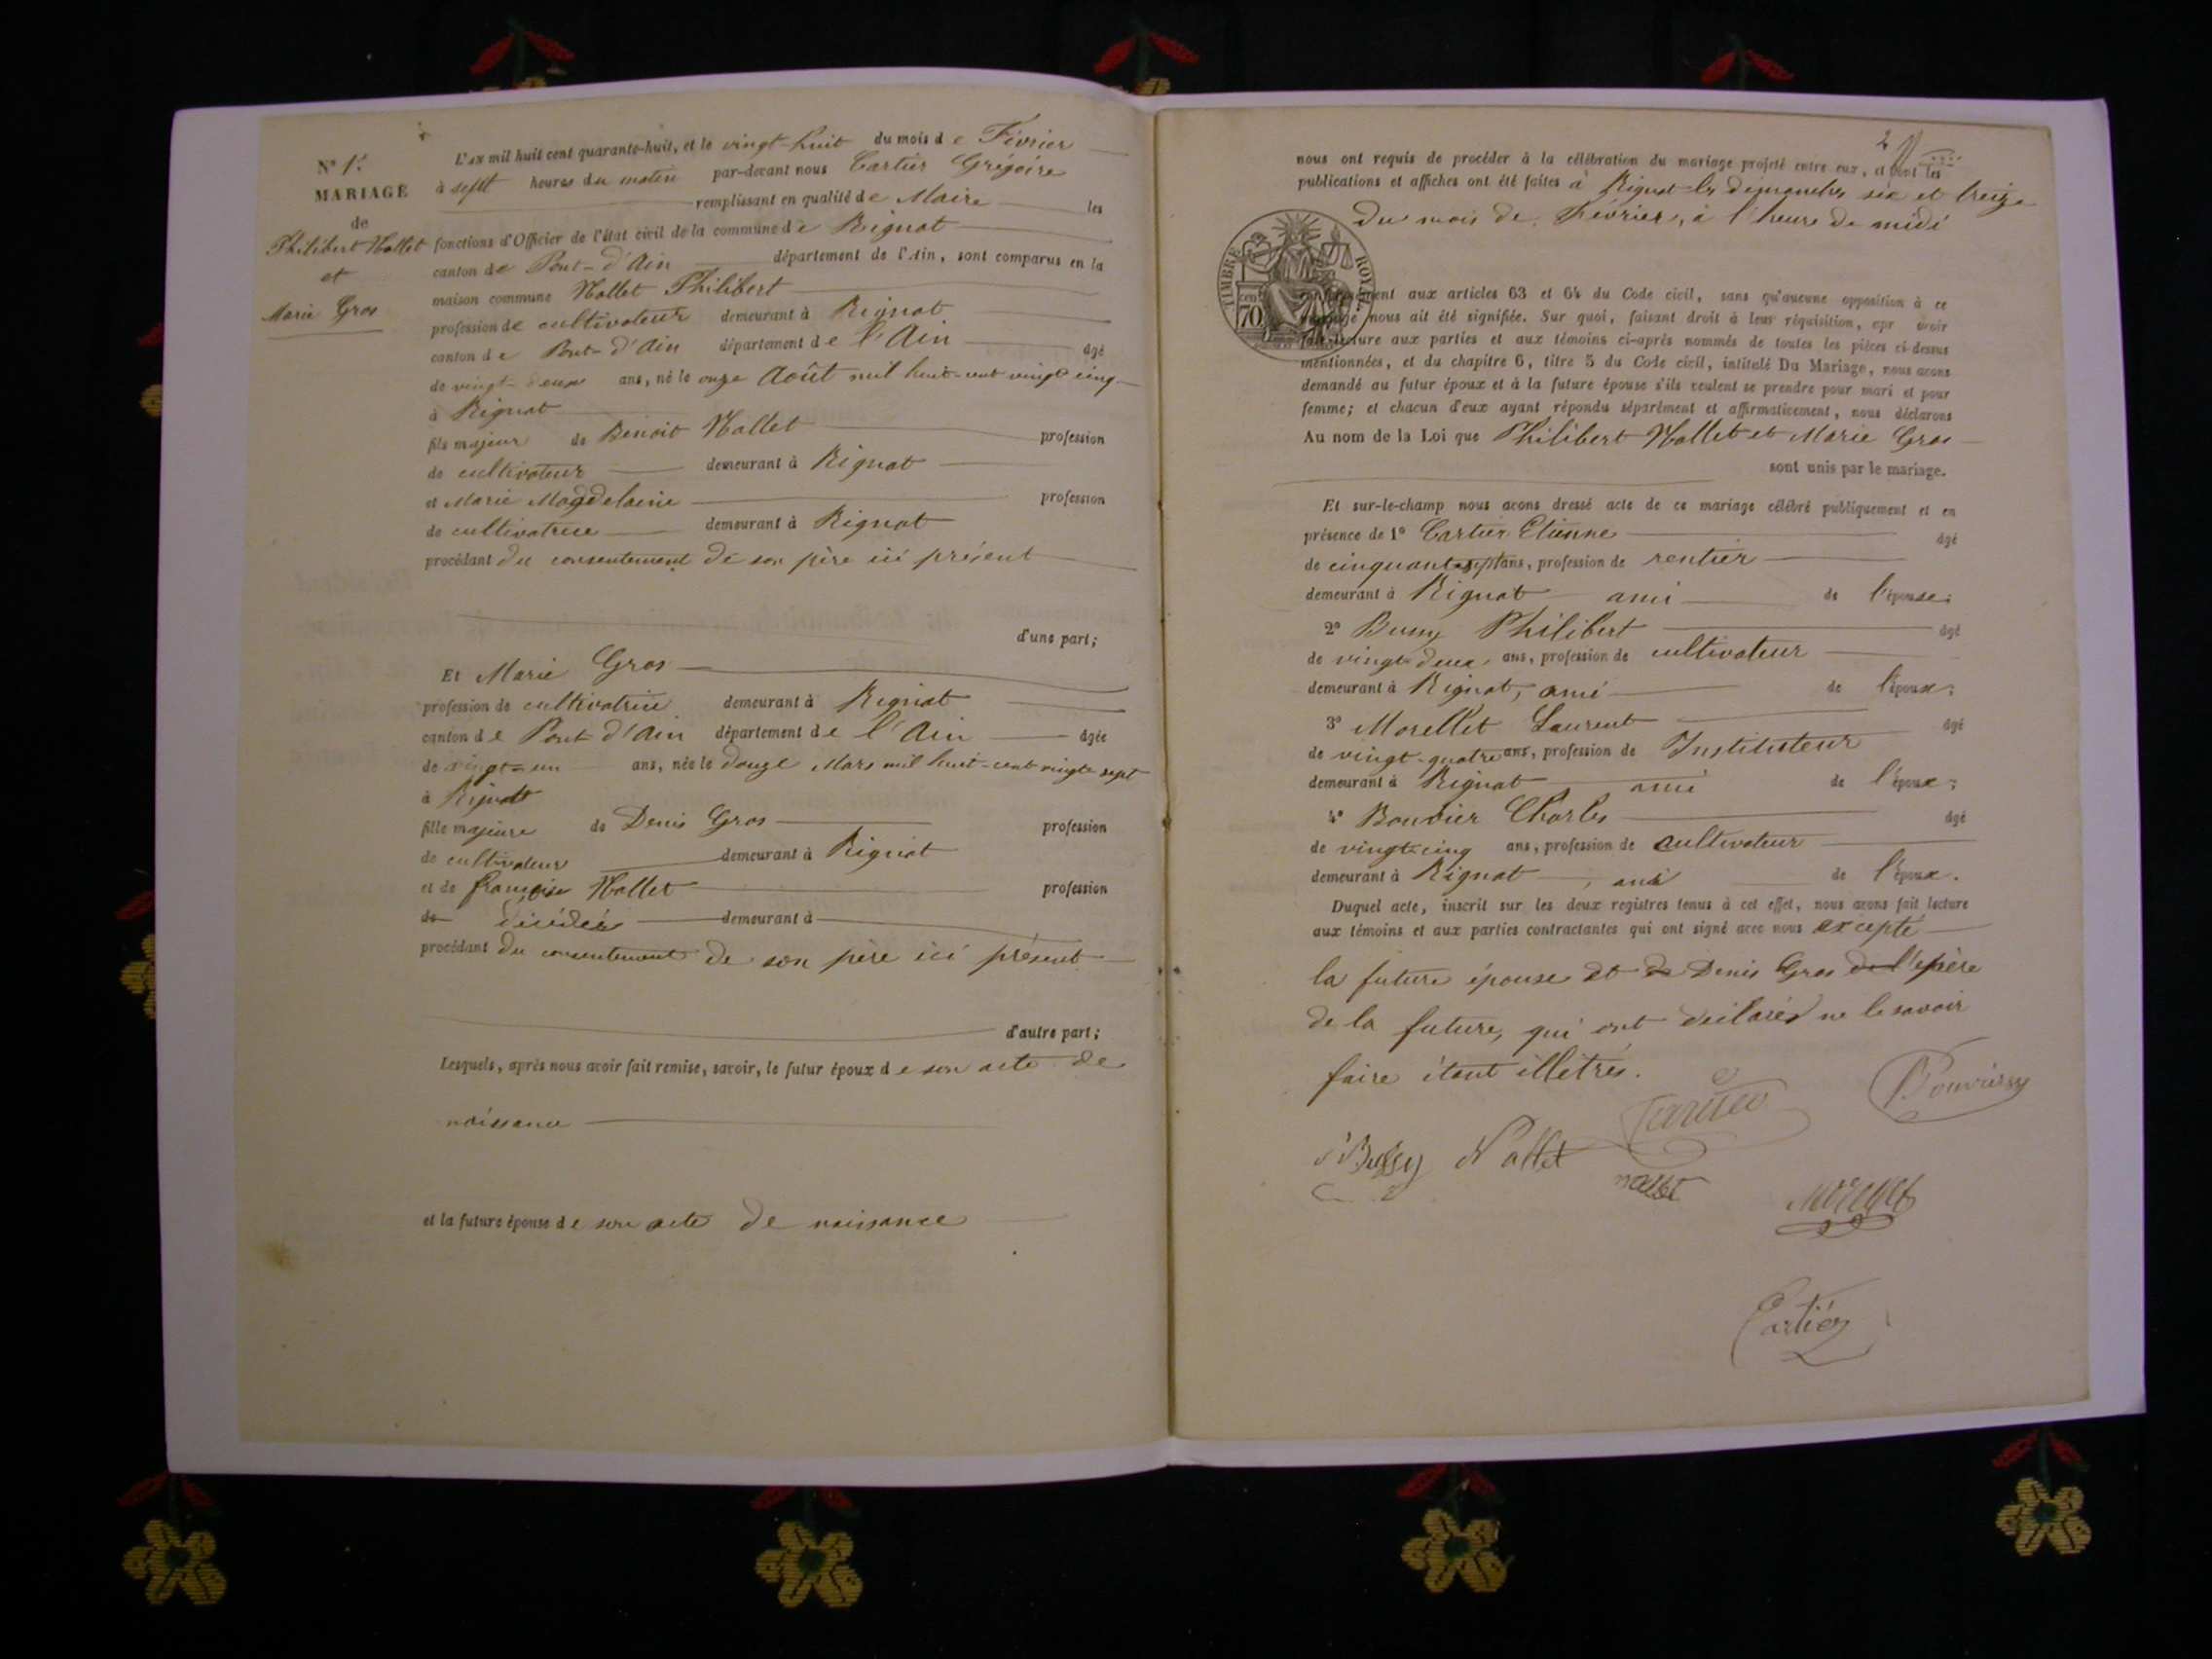 N° 1.
MARIAGE
de
Philibert Nallet
et
Marie Gros
L'an mil huit cent quarante-huit, et le vingt-huit du mois de Février
à sept heures du matin par-devant nous Cartier Grégoire
remplissant en qualité de Maire les
fonctions d'Officier de l'état civil de la commune de Rignat
canton de Pont-d'Ain département de l'Ain, sont comparus en la
maison commune Nallet Philibert
profession de cultivateur demeurant à Rignat
canton de Pont-d'Ain département de l'Ain âgé
de vingt-deux ans, né le onze Août mil huit-cent vingt cinq
à Rignat
fils majeur de Benoit Nallet profession
de cultivateur demeurant à Rignat
et Marie Magdelaine profession
de cultivatrice demeurant à Rignat
procédant du consentement de son père ici présent
d'une part;
Et Marie Gros
profession de cultivatrice demeurant à Rignat
canton de Pont d'Ain département de l'Ain âgée
de vingt-un ans, née le douze Mars mil huit-cent vingt-sept
à Rignat
fille majeure de Denis Gros profession
de cultivateur demeurant à Rignat
et de françoise Nallet profession
de décédée demeurant à
procédant du consentement de son père ici présent
d'autre part;
Lesquels, après nous avoir fait remise, savoir, le futur époux de son acte de
naissance
et la future épouse de son acte de naissance
2
nous ont requis de procéder à la célébration du mariage projeté entre eux, et dont les
publications et affiches ont été faites à Rignat les dimanches six et treize
du mois de Février, à l'heure de midi
TIMBRE ROYAL
70 cent
conformément aux articles 63 et 64 du Code civil, sans qu'aucune opposition à ce
mariage nous ait été signifiée. Sur quoi, faisant droit à leur réquisition, apr avoir
fait lecture aux parties et aux témoins ci-après nommés de toutes les pièces ci-dessus
mentionnées, et du chapitre 6, titre 5 du Code civil, intitulé Du Mariage, nous avons
demandé au futur époux et à la future épouse s'ils veulent se prendre pour mari et pour
femme; et chacun d'eux ayant répondu séparément et affirmativement, nous déclarons
Au nom de la Loi que Philibert Nallet et Marie Gros
sont unis par le mariage.
Et sur-le-champ nous avons dressé acte de ce mariage célébré publiquement et en
présence de 1° Cartier Etienne âgé
de cinquante sept ans, profession de rentier
demeurant à Rignat ami de l'épouse;
2° Bussy Philibert âgé
de vingt-deux ans, profession de cultivateur
demeurant à Rignat, ami de l'époux;
3° Morellet Laurent âgé
de vingt-quatre ans, profession de Instituteur
demeurant à Rignat ami de l'époux;
4° Bouvier Charles âgé
de vingt-cinq ans, profession de cultivateur
demeurant à Rignat, ami de l'époux.
Duquel acte, inscrit sur les deux registres tenus à cet effet, nous avons fait lecture
aux témoins et aux parties contractantes qui ont signé avec nous excepté
la future épouse et de Denis Gros de l'e père
de la future, qui ont déclarés ne le savoir
faire étant illétrés.
Cartier
Bussy Nallet
nallet
Morellet
Cartier